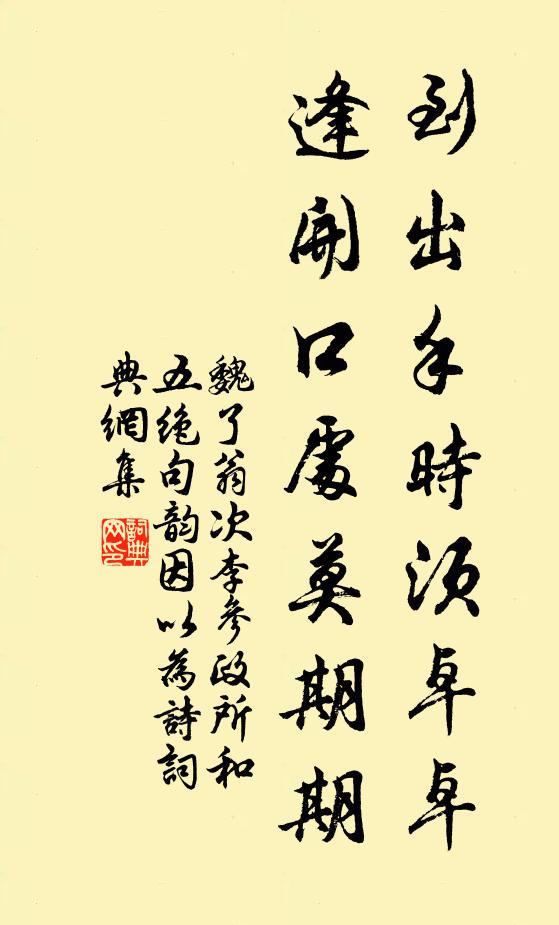 到出手時須卓卓
逢開口處莫期期
魏了翁次李參政所和
五絶句韵因以為詩詞
典網集
詞典網印